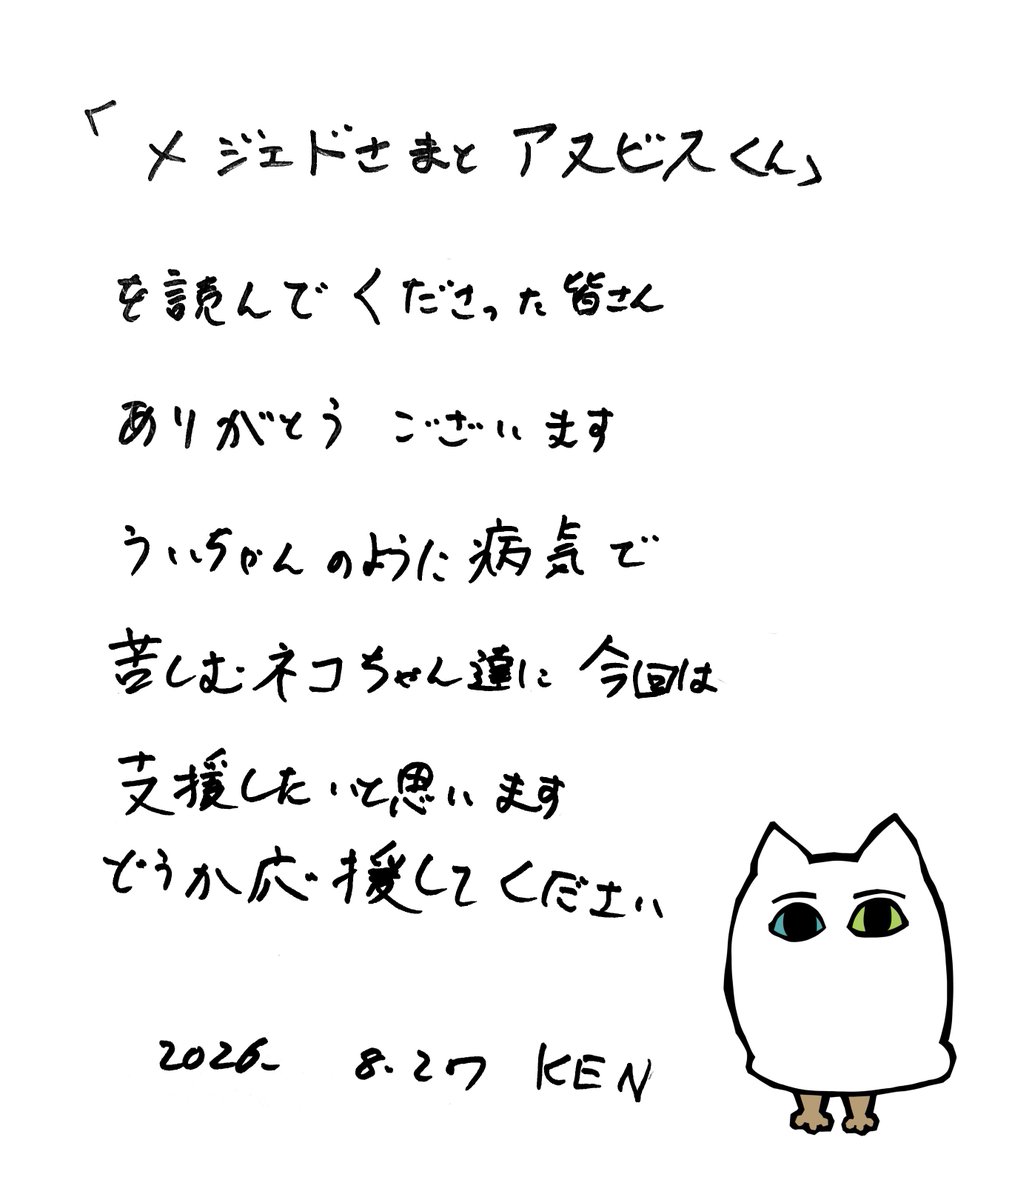 「メジェドさまとアヌビスくん」
を読んでくださった皆さん
ありがとうございます
ういちゃんのように病気で
苦しむネコちゃん達に今回は
支援したいと思います
どうか応援してください
2026. 8.27 KEN